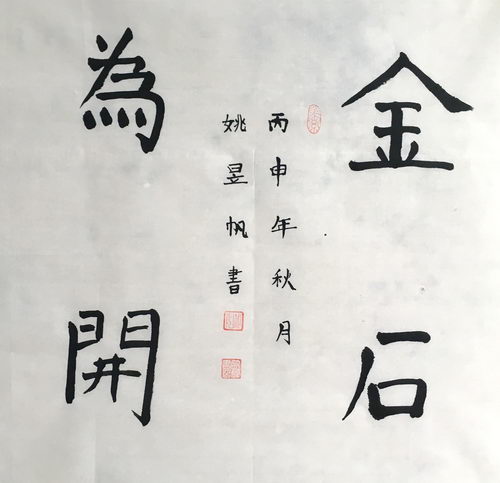 金石
為開
丙申年秋月
姚昱帆書